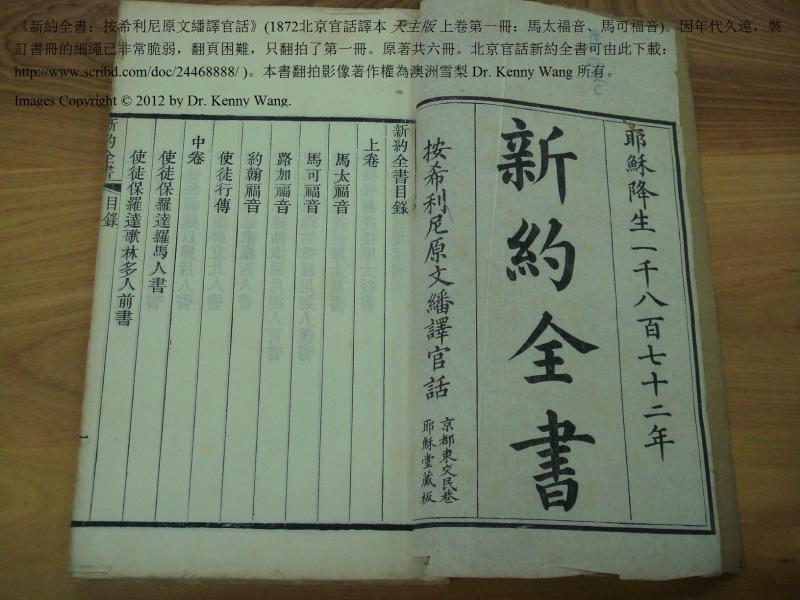 《新約全書：按希利尼原文繙譯官話》(1872北京官話譯本 天主版 上卷第一冊：馬太福音、馬可福音)。因年代久遠，裝
訂書冊的細繩已非常脆弱，翻頁困難，只翻拍了第一冊。原著共六冊。北京官話新約全書可由此下載：
http://www.scribd.com/doc/24468888/ )。本書翻拍影像著作權為澳洲雪梨 Dr. Kenny Wang 所有。
Images Copyright © 2012 by Dr. Kenny Wang.
耶穌降生一千八百七十二年
新約全書
按希利尼原文繙譯官話
京都東交民巷
耶穌堂藏板
新約全書目錄
上卷
馬太福音
馬可福音
路加福音
約翰福音
使徒行傳
中卷
使徒保羅達羅馬人書
使徒保羅達歌林多人前書
新約全書
目錄